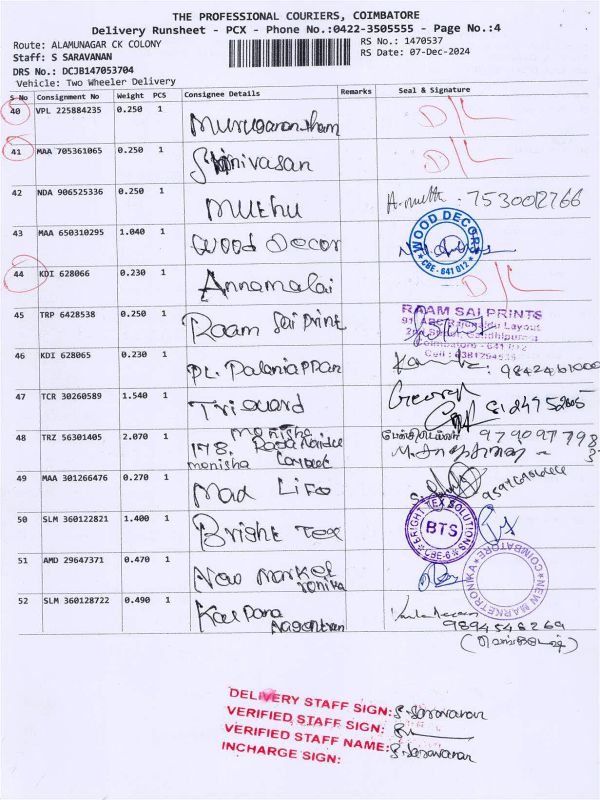 THE PROFESSIONAL COURIERS, COIMBATORE
Delivery Runsheet - PCX - Phone No.:0422-3505555 - Page No.:4
Route: ALAMUNAGAR CK COLONY RS No.: 1470537
Staff: S SARAVANAN RS Date: 07-Dec-2024
DRS No.: DCJB147053704
Vehicle: Two Wheeler Delivery
S No Consignment No Weight PCS Consignee Details Remarks Seal & Signature
40 VPL 225884235 0.250 1 D/L
41 MAA 705361065 0.250 1 Srinivasan D/L
42 NDA 906525336 0.250 1 Muthu A. muthu
43 MAA 650310295 1.040 1 Wood Decor WOOD DECORS CBE - 641 012
44 KDI 628066 0.230 1 Annamalai D/L
45 TRP 6428538 0.250 1 Raam Sai Print RAAM SAI PRINTS
Coimbatore - 641 012
46 KDI 628065 0.230 1 PL. Palaniappan
47 TCR 30260589 1.540 1 Triguard
48 TRZ 56301405 2.070 1 monisha
178.
monisha
49 MAA 301266476 0.270 1 Mad Life
50 SLM 360122821 1.400 1 Bright Tex BRIGHT TEX SOLUTIONS BTS CBE-6
51 AMD 29647371 0.470 1 New Market ronika NEW MARKETRONIKA COIMBATORE
52 SLM 360128722 0.490 1 Kalpana
9894546269
DELIVERY STAFF SIGN: S. Saravanan
VERIFIED STAFF SIGN:
VERIFIED STAFF NAME: S. Saravanan
INCHARGE SIGN: